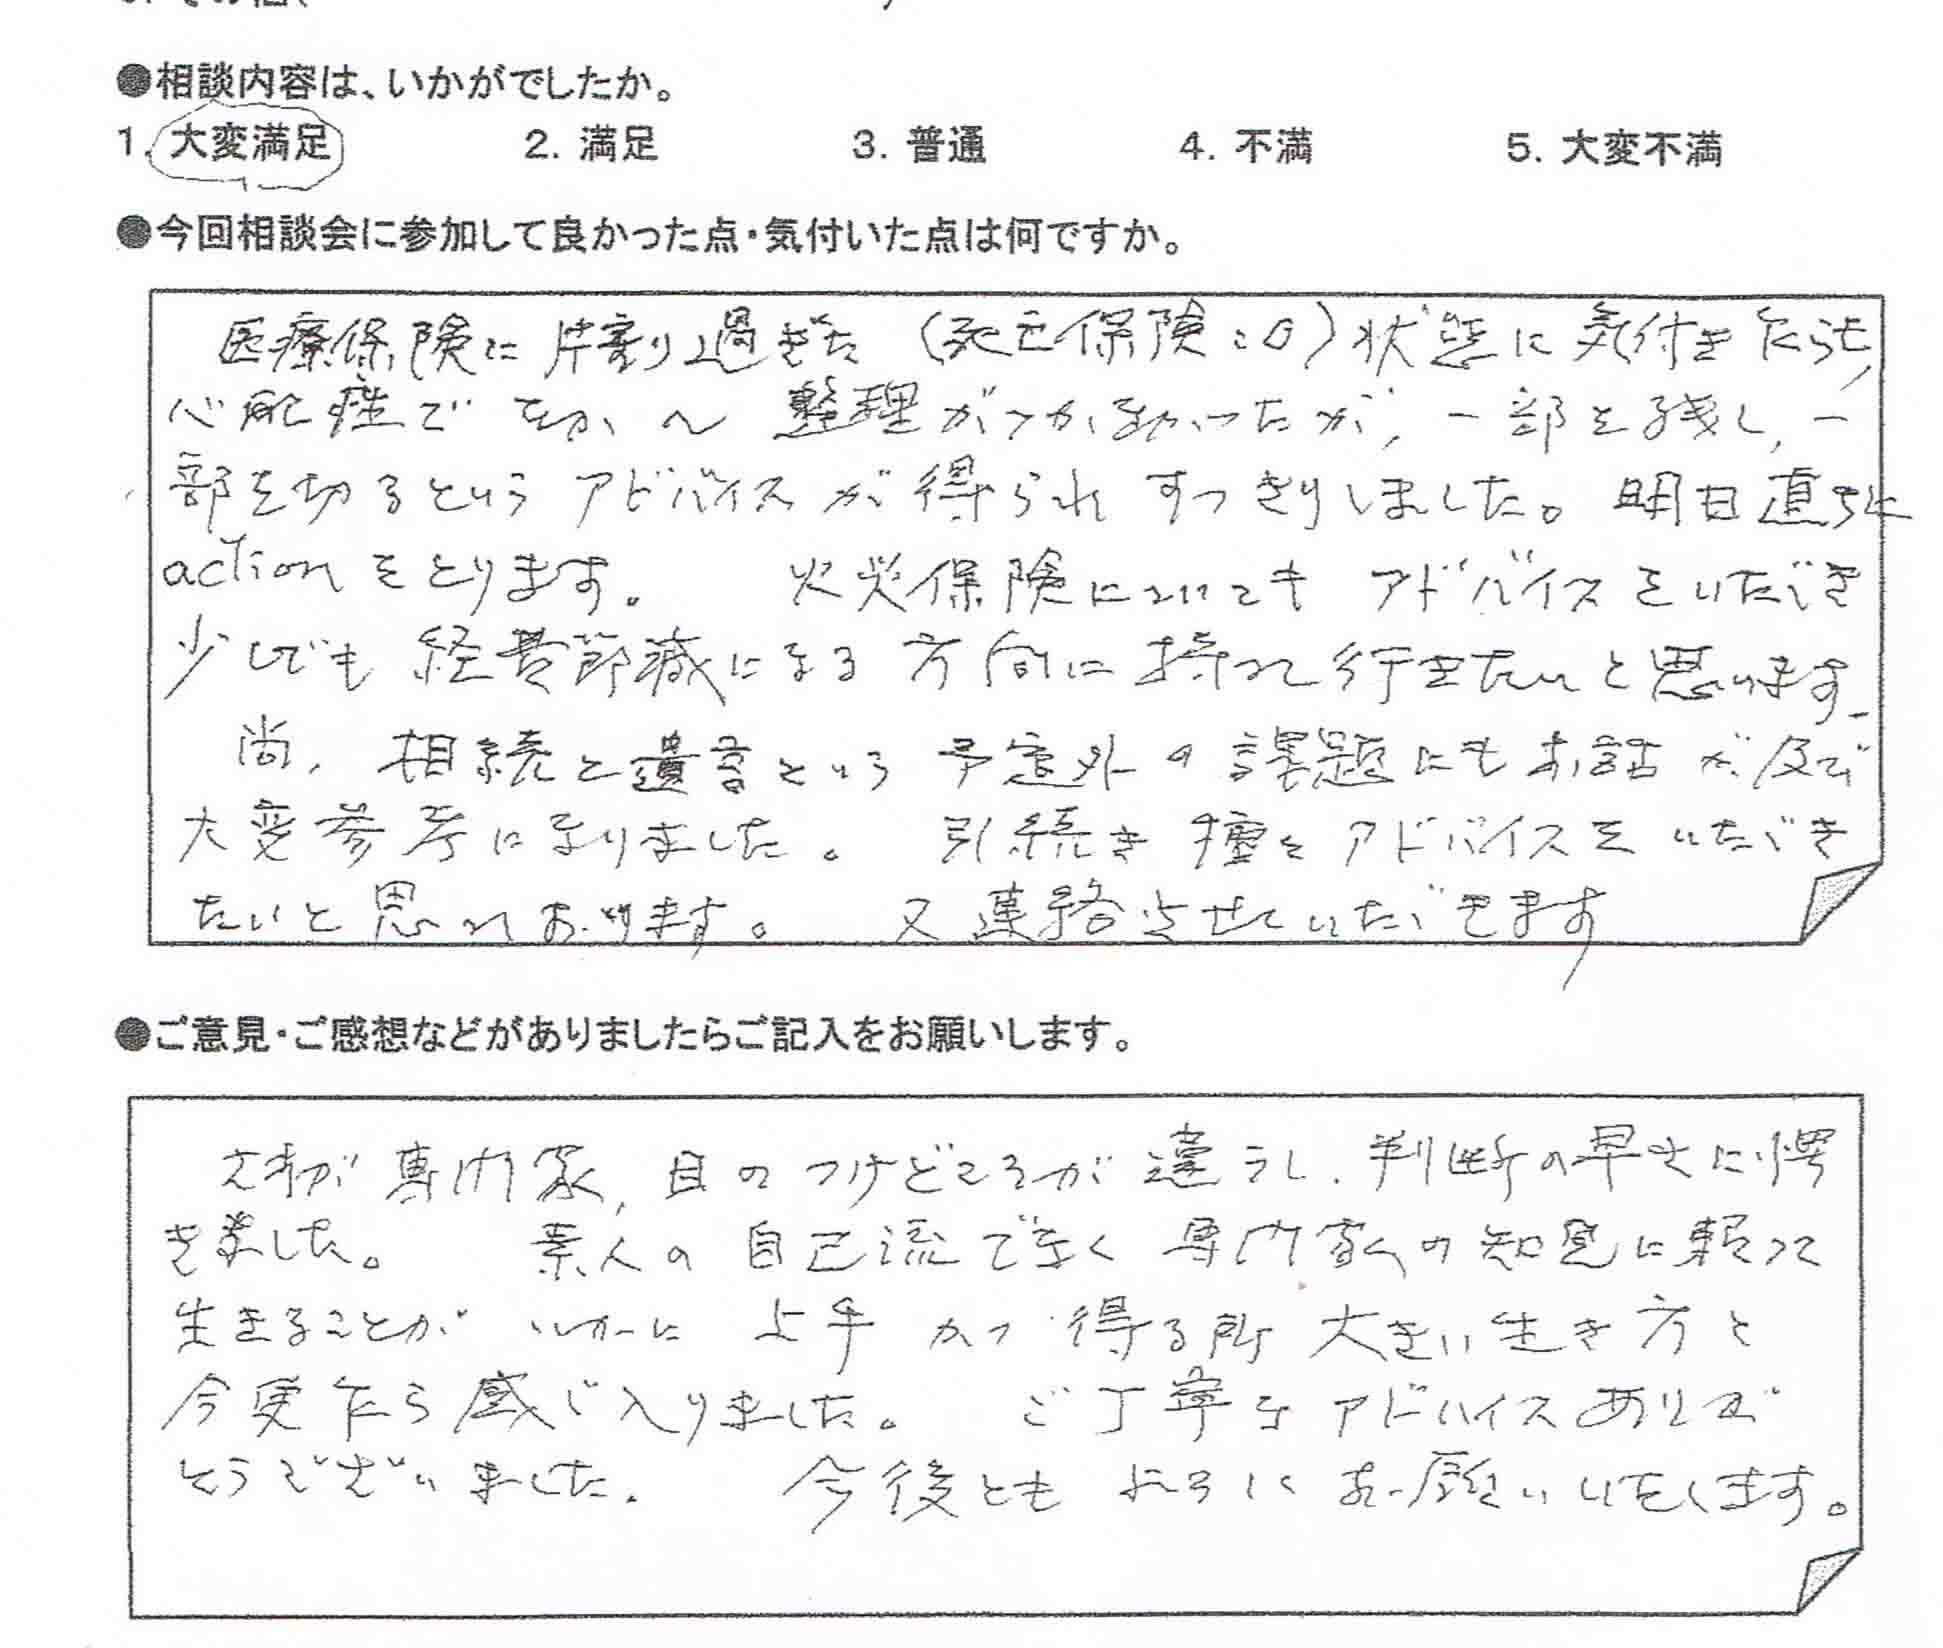 ●相談内容は、いかがでしたか。
1. 大変満足 2. 満足 3. 普通 4. 不満 5. 大変不満
●今回相談会に参加して良かった点・気付いた点は何ですか。
医療保険に片割り過ぎた（死亡保険：0）状態に気付きながらも、
心配症でなか〜整理がつかなかったが、一部を残し、一
部を切るというアドバイスが得られすっきりしました。明日直ちに
actionをとります。 火災保険についてもアドバイスをいただき
少しでも経費節減になる方向に持って行きたいと思います。
尚、相続と遺言という予定外の課題にもお話が及び
大変参考になりました。 引続き種々アドバイスをいただき
たいと思っております。 又連絡させていただきます
●ご意見・ご感想などがありましたらご記入をお願いします。
さすが専門家、目のつけどころが違うし、判断の早さに愕
きました。 素人の自己流でなく専門家の知見に頼って
生きることがいかに上手かつ得る所大きい生き方と
今更ながら感じ入りました。 ご丁寧なアドバイスありが
とうございました。 今後ともよろしくお願いいたします。